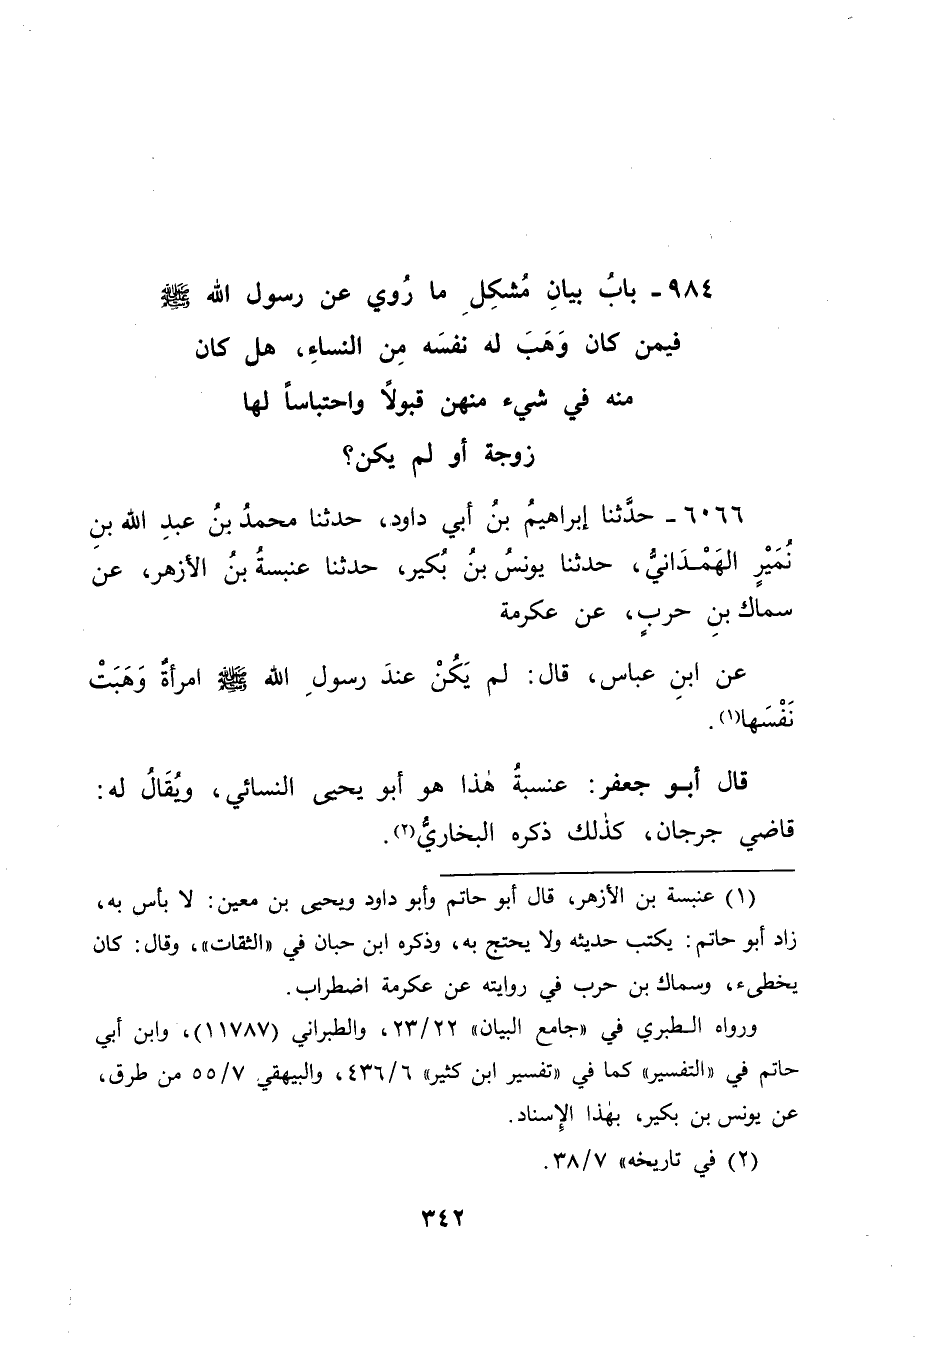 ٩٨٤ـ بابُ بيانِ مُشكِلِ ما رُوي عن رسول الله ﷺ
فيمن كان وَهَبَ له نفسَه مِن النساءِ، هل كان
منه في شيء منهن قبولاً واحتباساً لها
زوجة أو لم يكن؟
٦٠٦٦ـ حدَّثنا إبراهيمُ بنُ أبي داود، حدثنا محمدُ بنُ عبدِ الله بنِ
نُمَيْرٍ الهَمْدَانيُّ، حدثنا يونسُ بنُ بُكير، حدثنا عنبسةُ بنُ الأزهر، عن
سماك بنِ حربٍ، عن عكرمة
عن ابنِ عباس، قال: لم يَكُنْ عندَ رسولِ الله ﷺ امرأةٌ وَهَبَتْ
نَفْسَها(١).
قال أبو جعفر: عنبسةُ هٰذا هو أبو يحيى النسائي، ويُقَالُ له:
قاضي جرجان، كذٰلك ذكره البخاريُّ(٢).
(١) عنبسة بن الأزهر، قال أبو حاتم وأبو داود ويحيى بن معين: لا بأس به،
زاد أبو حاتم: يكتب حديثه ولا يحتج به، وذكره ابن حبان في «الثقات»، وقال: كان
يخطىء، وسماك بن حرب في روايته عن عكرمة اضطراب.
ورواه الطبري في «جامع البيان» ٢٣/٢٢، والطبراني (١١٧٨٧)، وابن أبي
حاتم في «التفسير» كما في «تفسير ابن كثير» ٤٣٦/٦، والبيهقي ٥٥/٧ من طرق،
عن يونس بن بكير، بهٰذا الإسناد.
(٢) في تاريخه» ٣٨/٧.
٣٤٢